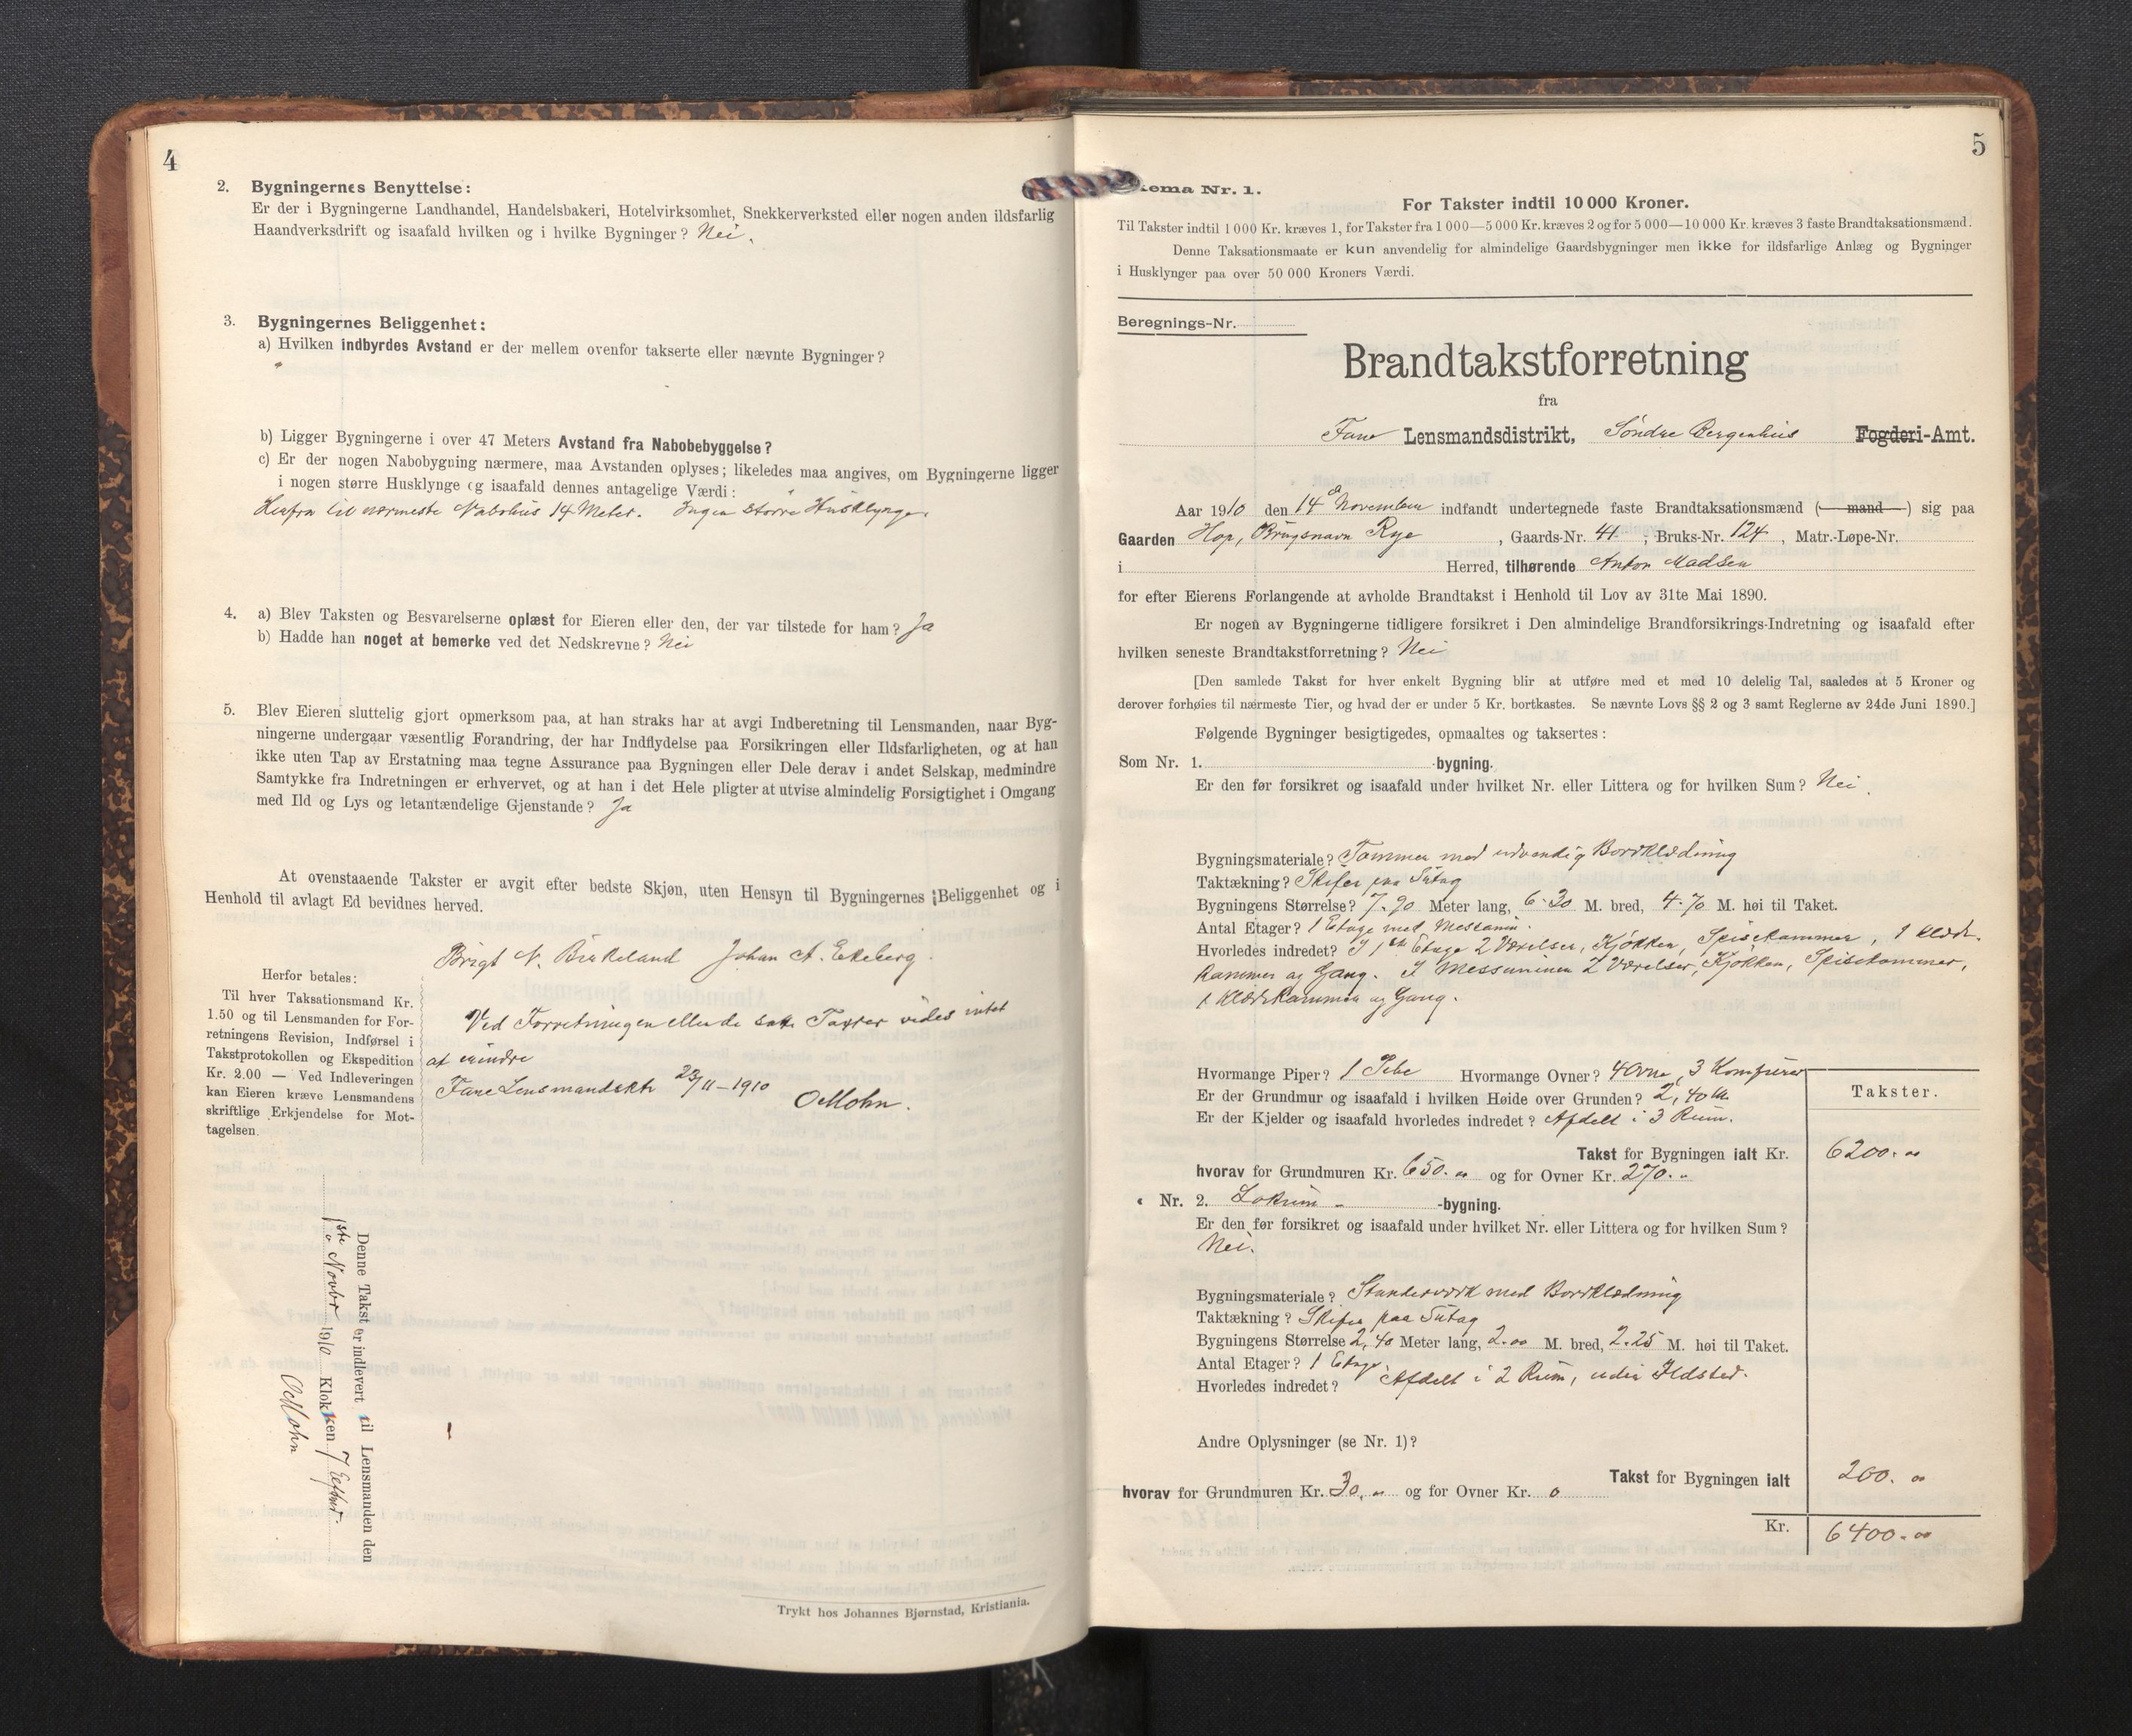 4
2. Bygningernes Benyttelse:
Er der i Bygningerne Landhandel, Handelsbakeri, Hotelvirksomhet, Snekkerverksted eller nogen anden ildsfarlig
Haandverksdrift og isaafald hvilken og i hvilke Bygninger? Nei.
3. Bygningernes Beliggenhet:
a) Hvilken indbyrdes Avstand er der mellem ovenfor takserte eller nævnte Bygninger?
b) Ligger Bygningerne i over 47 Meters Avstand fra Nabobebyggelse?
c) Er der nogen Nabobygning nærmere, maa Avstanden oplyses; likeledes maa angives, om Bygningerne ligger
i nogen større Husklynge og isaafald dennes antagelige Værdi:
Herfra til nærmeste Nabohus 14 Meter. Ingen større Husklynge.
4. a) Blev Taksten og Besvarelserne oplæst for Eieren eller den, der var tilstede for ham? Ja
b) Hadde han noget at bemerke ved det Nedskrevne? Nei
5. Blev Eieren sluttelig gjort opmerksom paa, at han straks har at avgi Indberetning til Lensmanden, naar Byg-
ningerne undergaar væsentlig Forandring, der har Indflydelse paa Forsikringen eller Ildsfarligheten, og at han
ikke uten Tap av Erstatning maa tegne Assurance paa Bygningen eller Dele derav i andet Selskap, medmindre
Samtykke fra Indretningen er erhvervet, og at han i det Hele pligter at utvise almindelig Forsigtighet i Omgang
med Ild og Lys og letantændelige Gjenstande? Ja
At ovenstaaende Takster er avgit efter bedste Skjøn, uten Hensyn til Bygningernes Beliggenhet og i
Henhold til avlagt Ed bevidnes herved.
Brigt N. Birkeland Johan A. Ekeberg.
Herfor betales:
Til hver Taksationsmand Kr.
1.50 og til Lensmanden for For-
retningens Revision, Indførsel i
Takstprotokollen og Ekspedition
Kr. 2.00 — Ved Indleveringen
kan Eieren kræve Lensmandens
skriftlige Erkjendelse for Mot-
tagelsen.
Ved Forretningen eller de satte Taxter vides intet
at erindre
Fane Lensmandsktr 23/11-1910
OMohn.
Denne Takst er indlevert til Lensmanden den
Novbr 1910 Klokken 7 Efterm.
OMohn
Trykt hos Johannes Bjørnstad, Kristiania.
5
ema Nr. 1.
For Takster indtil 10 000 Kroner.
Til Takster indtil 1 000 Kr. kræves 1, for Takster fra 1 000—5 000 Kr. kræves 2 og for 5 000—10 000 Kr. kræves 3 faste Brandtaksationsmænd.
Denne Taksationsmaate er kun anvendelig for almindelige Gaardsbygninger men ikke for ildsfarlige Anlæg og Bygninger
i Husklynger paa over 50 000 Kroners Værdi.
Beregnings-Nr.
Brandtakstforretning
fra
Fane Lensmandsdistrikt, Søndre Bergenhus Fogderi-Amt.
Aar 1910 den 14 d November indfandt undertegnede faste Brandtaksationsmænd (mand) sig paa
Gaarden Hop, Brugsnavn Rye, Gaards-Nr. 41; Bruks-Nr. 124, Matr.-Løpe-Nr.
i Herred, tilhørende Anton Madsen
for efter Eierens Forlangende at avholde Brandtakst i Henhold til Lov av 31te Mai 1890.
Er nogen av Bygningerne tidligere forsikret i Den almindelige Brandforsikrings-Indretning og isaafald efter
hvilken seneste Brandtakstforretning? Nei
[Den samlede Takst for hver enkelt Bygning blir at utføre med et med 10 delelig Tal, saaledes at 5 Kroner og
derover forhøies til nærmeste Tier, og hvad der er under 5 Kr. bortkastes. Se nævnte Lovs §§ 2 og 3 samt Reglerne av 24de Juni 1890.]
Følgende Bygninger besigtigedes, opmaaltes og taksertes:
Som Nr. 1. -bygning.
Er den før forsikret og isaafald under hvilket Nr. eller Littera og for hvilken Sum? Nei.
Bygningsmateriale? Tømmer med udvendig Bordklædning
Taktækning? Skifer paa Sutag
Bygningens Størrelse? 7.90 Meter lang, 6.30 M. bred, 4.70 M. høi til Taket.
Antal Etager? 1 Etage med Messanin.
Hvorledes indret? I 1ste Etage 2 Værelser, Kjøkken, Spisekammer, 1 klæde-
kammer og Gang. I Messaninen 2 Værelser, Kjøkken, Spisekammer,
1 Klædekammer og Gang.
Hvormange Piper? 1 Pibe Hvormange Ovner? 4 Ovne, 3 Komfurer
Er der Grundmur og isaafald i hvilken Høide over Grunden? 2,40 M.
Er der Kjelder og isaafald hvorledes indredet? Afdelt i 3 Rum.
Takster.
Takst for Bygningen ialt Kr. 6200.00
hvorav for Grundmuren Kr. 650.00 og for Ovner Kr. 270.-
Nr. 2. Lokum- -bygning.
Er den før forsikret og isaafald under hvilket Nr. eller Littera og for hvilken Sum?
Nei.
Bygningsmateriale? Standerværk med Bordklædning
Taktækning? Skifer paa Sutag
Bygningens Størrelse 2,40 Meter lang, 2.00 M. bred, 2.25 M. høi til Taket.
Antal Etager? 1 Etage.
Hvorledes indredet? Afdelt i 2 Rum, uden Ildsted.
Andre Oplysninger (se Nr. 1)?
Takst for Bygningen ialt 200.00
hvorav for Grundmuren Kr. 30.00 og for Ovner Kr. 0
Kr. 6400.00